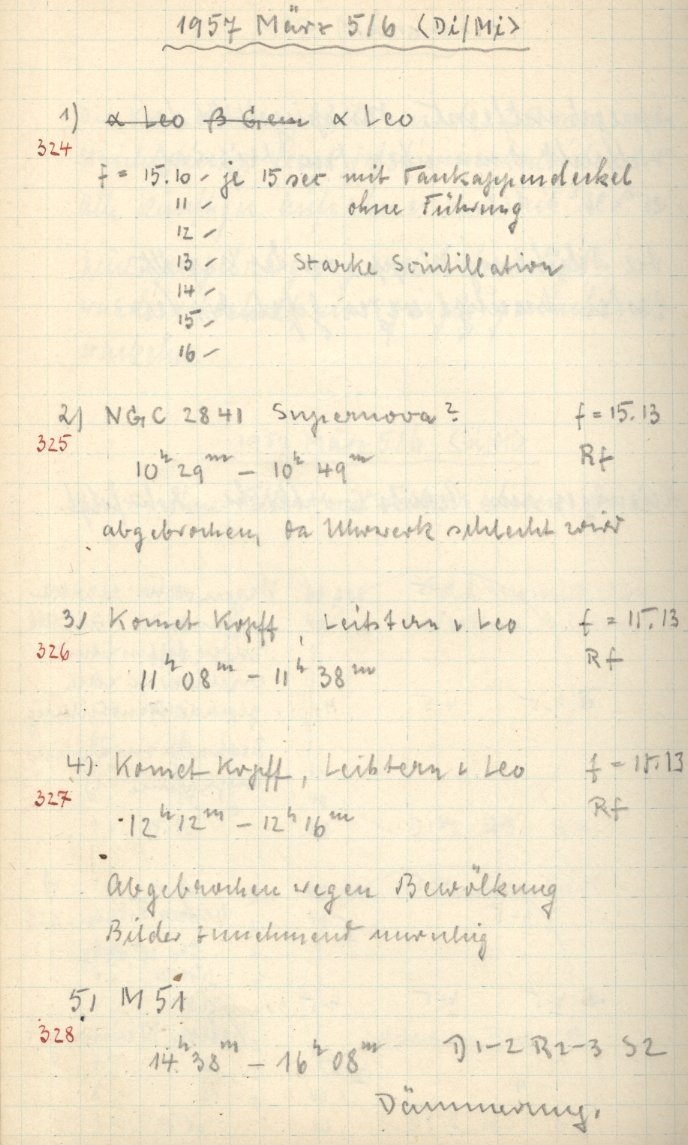 1957 März 5/6 (Di/Mi)
1) α Leo β Gem α Leo
324
f = 15.10 - je 15 sec mit Tankappendeckel
11 - ohne Führung
12 -
13 - Starke Scintillation
14 -
15 -
16 -
2) NGC 2841 Supernova? f = 15.13
325 Rf
10h 29m - 10h 49m
abgebrochen, da Uhrwerk schlecht wird
3) Komet Kopff, Leitstern ι Leo f = 15.13
326 Rf
11h 08m - 11h 38m
4) Komet Kopff, Leitstern ι Leo f = 15.13
327 Rf
12h 12m - 12h 16m
Abgebrochen wegen Bewölkung
Bilder zunehmend unruhig
5) M 51
328
14h 38m - 16h 08m D1-2 R2-3 S2
Dämmerung.